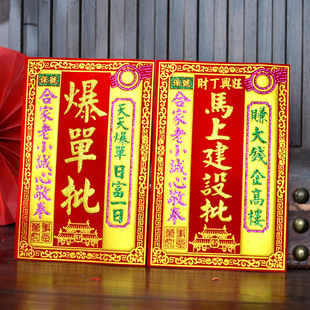 保號
爆單批
天天爆單 日富一日
合家老小誠心敬奉
保號
財丁興旺
馬上建設批
賺大錢 金高樓
合家老小誠心敬奉